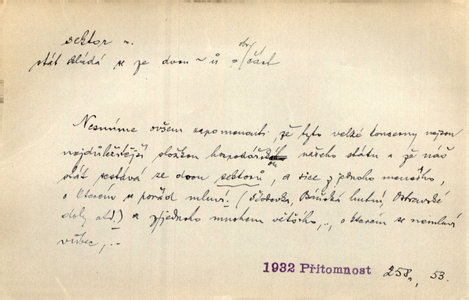 sektor m.
stát skládá se ze dvou ~ ů obr/část
Nesmíme ovšem zapomenouti, že tyto velké koncerny nejsou
nejdůležitější složkou hospodářskou našeho státu a že náš
stát sestává ze dvou sektorů, a sice z jednoho menšího,
o kterém se pořád mluví (Škodovka, Báňská hutní, Ostravské
doly atd.) a z jednoho mnohem většího,.. o kterém se nemluví
vůbec,..
1932 Přítomnost 258, 53.